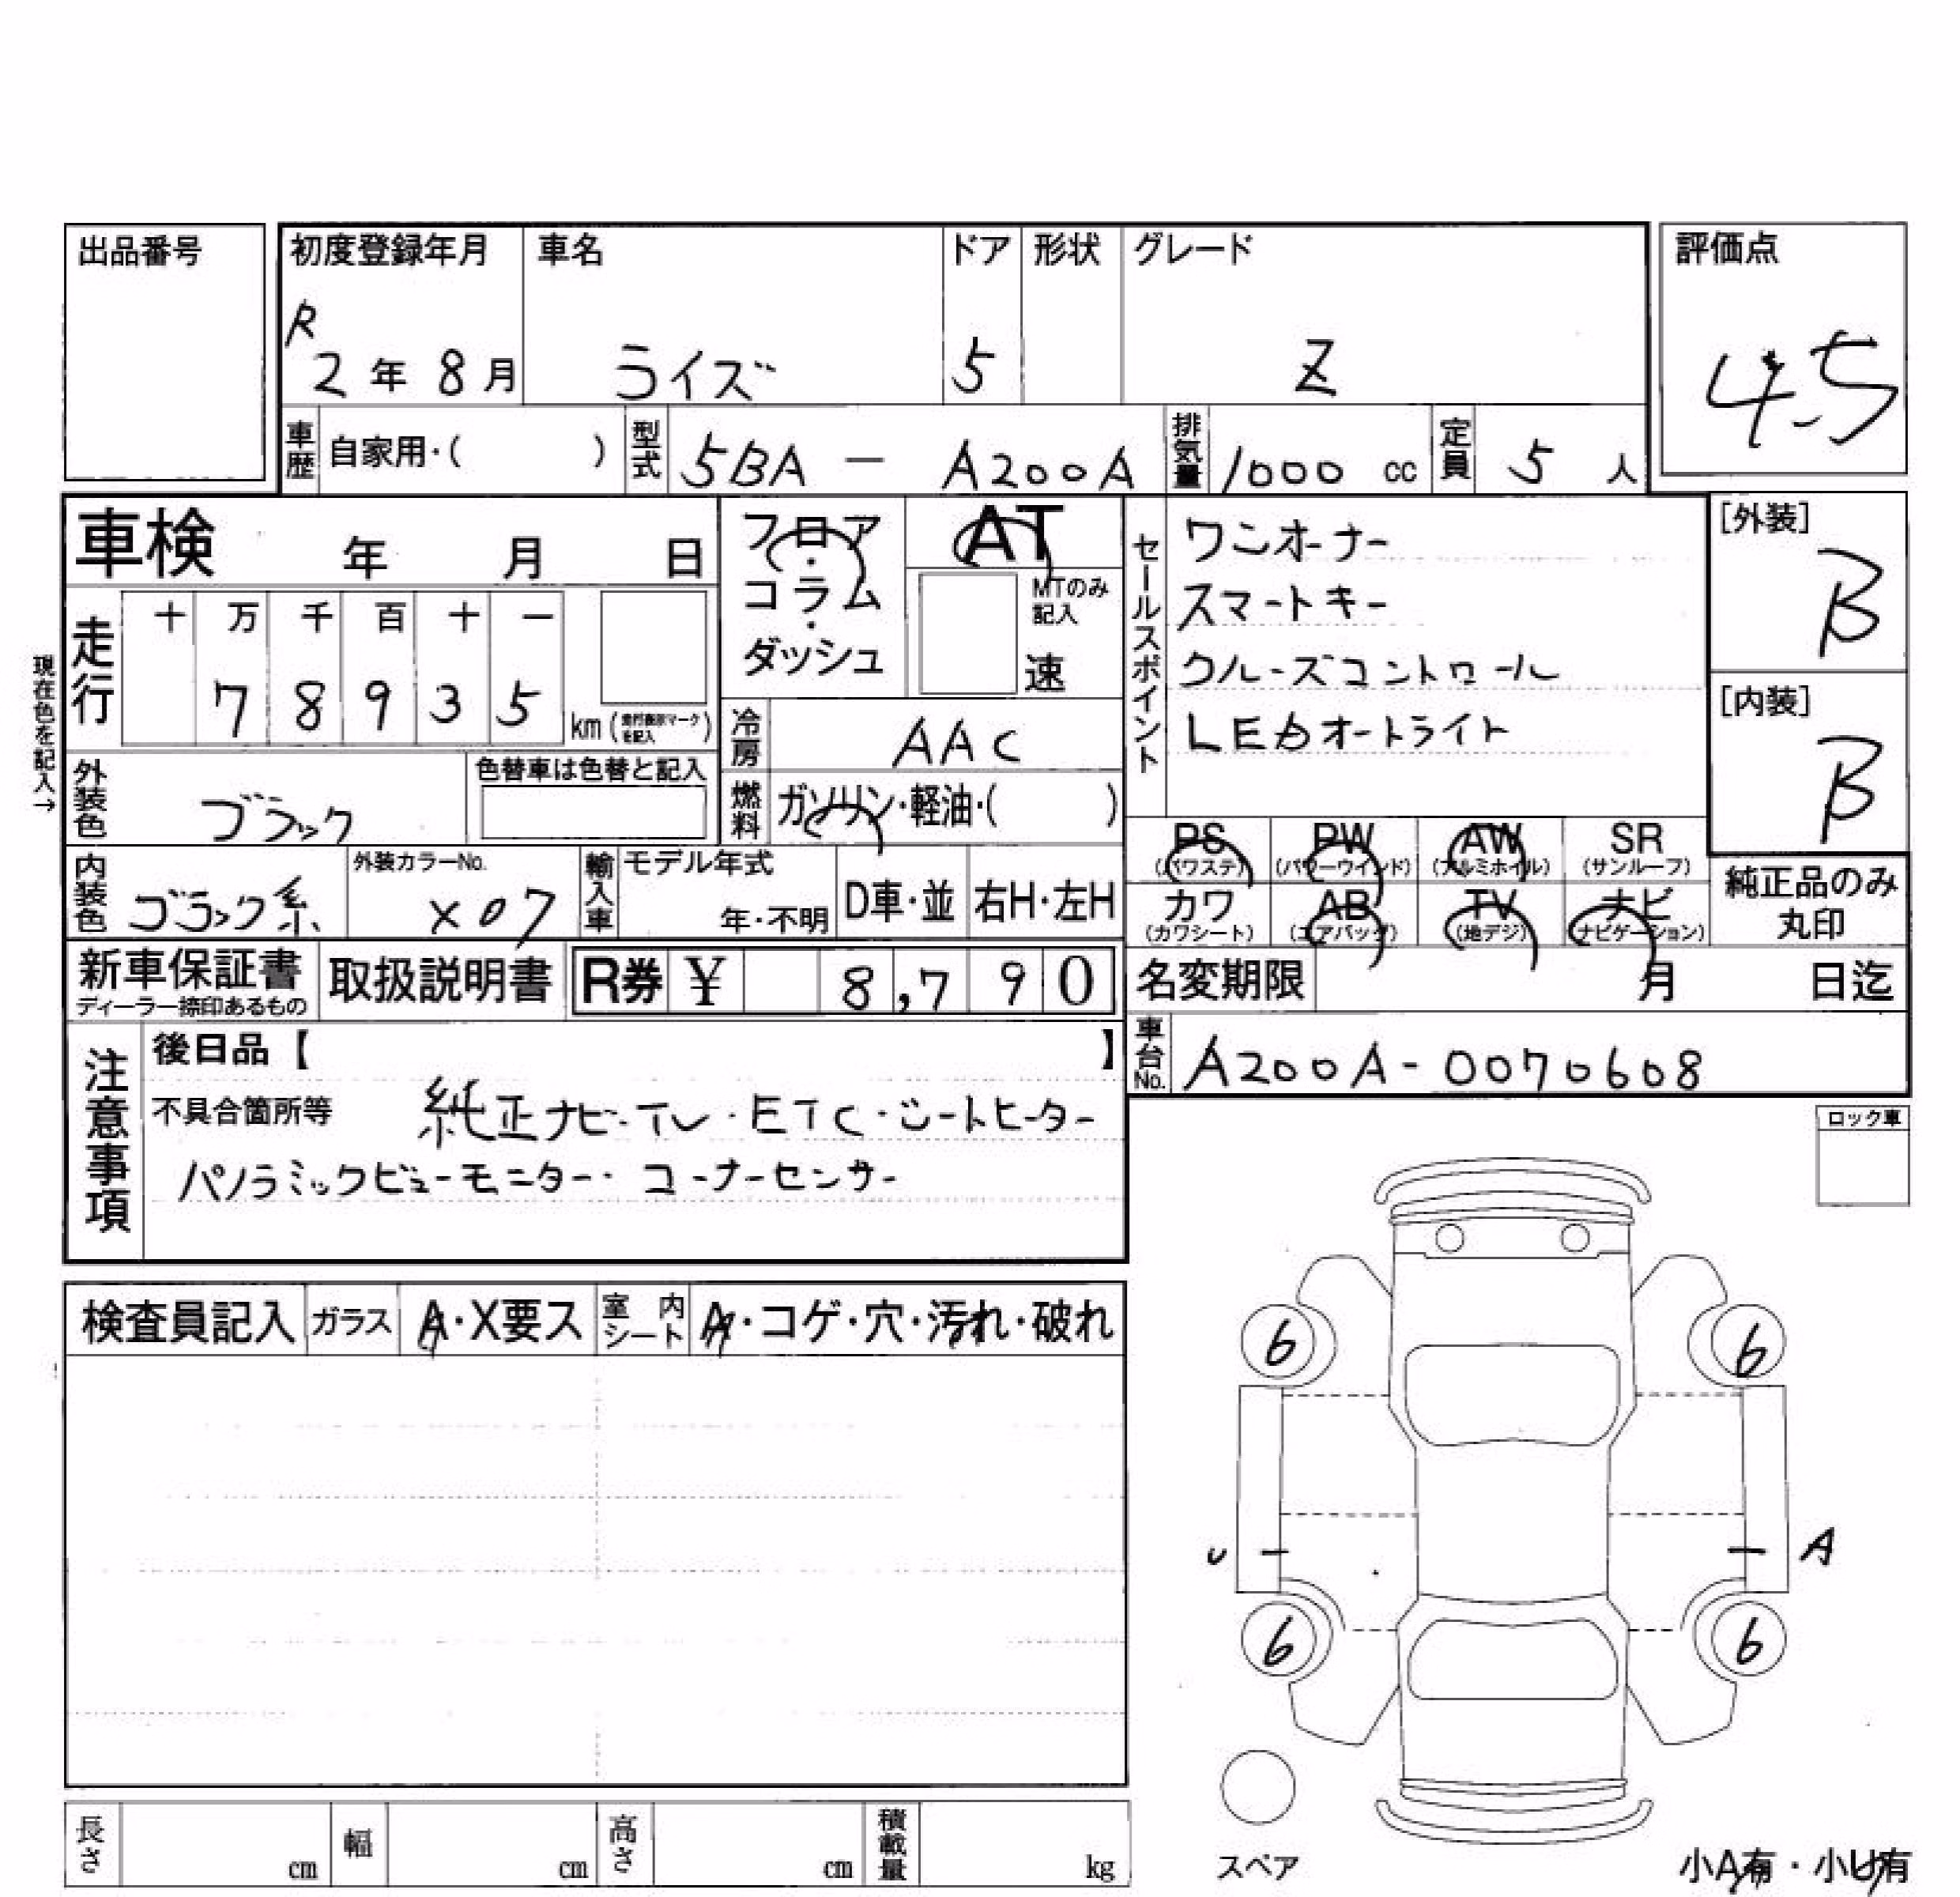 出品番号
初度登録年月 車名 ドア 形状 グレード 評価点
R
2年 8月 ライズ 5 Z 4.5
車歴 自家用・( ) 型式 5BA - A200A 排気量 1000 cc 定員 5 人
車検 年 月 日
フロア・コラム・ダッシュ
AT
MTのみ記入
速
セールスポイント
ワンオーナー
スマートキー
クルーズコントロール
LEDオートライト
[外装]
B
[内装]
B
現在色を記入→
走行 十 万 千 百 十 一
7 8 9 3 5 km (走行表示マークを記入)
冷房 AAC
外装色 ブラック 色替車は色替と記入
燃料 ガソリン・軽油・( )
PS PW AW SR
(パワステ) (パワーウインド) (アルミホイル) (サンルーフ)
カワ AB TV ナビ
(カワシート) (エアバッグ) (地デジ) (ナビゲーション)
純正品のみ
丸印
内装色 ブラック系 外装カラーNo. X07 輸入車 モデル年式 年・不明 D車・並 右H・左H
新車保証書 取扱説明書 R券 ¥ 8,790
ディーラー捺印あるもの
名変期限 月 日迄
車台No. A200A-0070608
注意事項
後日品【 】
不具合箇所等 純正ナビ・TV・ETC・シートヒーター
パノラミックビューモニター・コーナーセンサー
ロック車
検査員記入 ガラス A・X要ス 室内シート A・コゲ・穴・汚れ・破れ
6 6
U A
6 6
スペア
小A有・小U有
長さ cm 幅 cm 高さ cm 積載量 kg